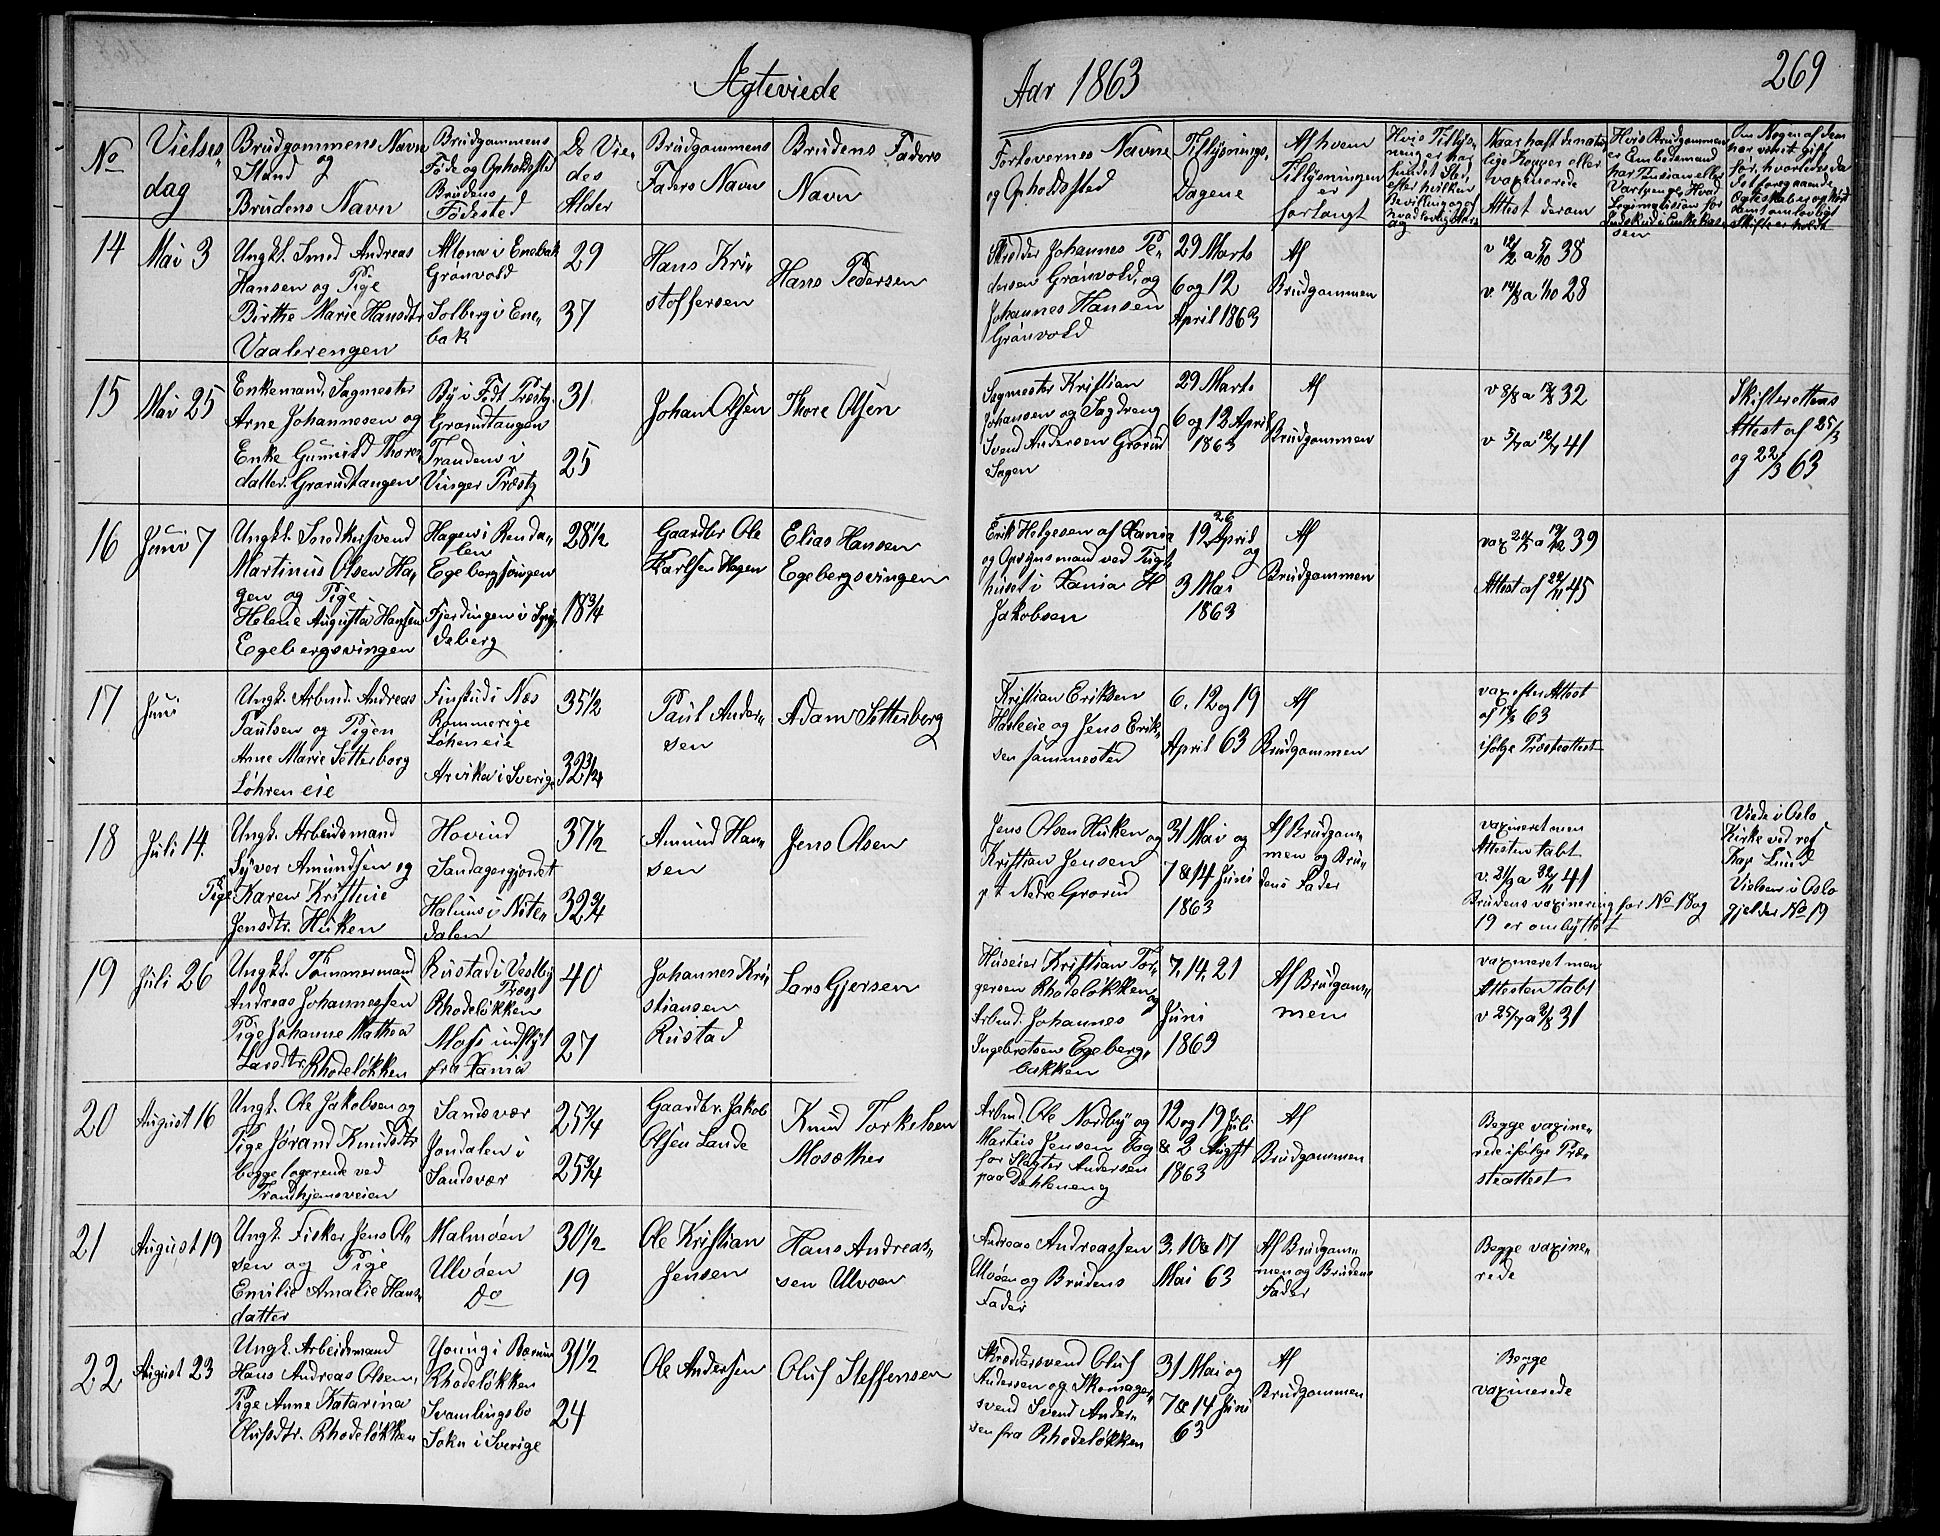 Ægteviede
Aar 1863
269
No
Vielses-
dag
Brudgommens Navn
og
Stand
Brudens Navn
Brudgommens
Føde og Opholdssted
Brudens
Fødested
De Vie-
des
Alder
Brudgommens
Faders Navn
Brudens Faders
Navn
Forlovernes Navne
og Opholdssted
Tillysnings-
Dagene
Af hvem
Tillysningen
er
forlangt
Naar haft de natur-
lige Kopper eller
vaxinerede
Attest derom
14
Mai 3
Ungk. Smed Andreas
Hansen og Pige
Birthe Marie Hansdtr
Vaalerengen
Altona i Enebak
Grønvold
Solberg i Ene-
bak
29
37
Hans Kri-
stoffersen
Hans Pedersen
Skrædder Johannes Pe-
dersen Grønvold, og
Johannes Hansen
Grønvold
29 Marts
6 og 12
April 1863
Af
Brudgommen
38
28
15
Mai 25
Enkemand, Sagmester
Arne Johannesen og
Enke Gunnild Thores
datter. Grorudtangen
By i Fedt Præstg.
Grorudtangen
Tranden i
Vinger Præstg
31
25
Johan Olsen
Thore Olsen
Sagmester Kristian
Johansen og Sagdreng
Svend Andersen Grorud
Sagen
29 Marts
6 og 12 April
1863
Af
Brudgommen
v 8/8 a 32
41
Skifterettens
Attest af 25/3
og 22/3 63
16
Juni 7
Ungk. Snedkersvend
Martinus Olsen Ha-
gen og Pige
Helene Augusta Hansen
Egebergsvingen
Hagen i Renda-
len
Egebergsvingen
Fjerdingen i
28 1/2
18 3/4
Gaardbr Ole
Karlsen Hagen
Elias Hansen
Egebergsvingen
Erik Helgesen af Xania
og Opsynsmand ved Tugt-
huset i Xania H
Jakobsen
19, 26 April
og
3 Mai
1863
Af
Brudgommen
39
Attest af 22/11 45
17
Juni
Ungk. Arbmd. Andreas
Paulsen og Pigen
Anne Marie Setterberg
Løhren eie
Finstud i Næs
Rommerige
Løhreneie
Arvika i Sverige
35 1/2
32 3/4
Paul Ander-
sen
Adam Setterberg
Kristian Eriksen
Hasleeie og Jens Erik-
sen sammested
6, 12 og 19
April 63
Af
Brudgommen
vax efter Attest
63
ifølge Præsteattest
18
Juli 14.
Ungk. Arbeidsmand
Syver Amundsen og
Pige Karen Kristine
Jensdtr. Huken
Hovind
Sandagergjordet
i Nite-
dalen
37 1/2
32 3/4
Amund Han-
sen
Jens Olsen
Jens Olsen Huken og
Kristian Jensen
p t Nedre Grorud
31 Mai og
7 & 14 Juni
1863
Af Brudgom-
men og Bru-
dens Fader
vaxineret men
Attesten tabt
41
Brudens vaxinering for No 18 og
19 er ombyttet
Viede i Oslo
Kirke ved res
Kap Lund
Vielsen i Oslo
gjelder No 19
19
Juli 26
Ungk. Tømmermand
Andreas Johannessen
Pige Johanne Mathea
Larsdtr. Rhodeløkken
Rustad i Vestby
Præstg
Rhodeløkken
Moss indflyt
fra Xania
40
27
Johannes Kri-
stiansen
Rustad
Lars Gjersen
Huseier Kristian Tor-
gersen Rhodeløkken og
Arbmd. Johannes
Ingebretsen Egeberg-
bakken
7, 14, 21
Juni
1863
Af Brudgom-
men
vaxineret men
Attesten tabt
31
20
August 16
Ungk. Ole Jakobsen og
Pige Jørand Knudsdtr
begge logerende ved
Trondhjemsveien
Sandsvær
Jondalen i
Sandsvær
25 3/4
25 3/4
Gaardbr. Jakob
Olsen Lande
Knud Torkelsen
Arbmd. Ole Nordby og
Martius Jensen
for Slagter Andersen
paa
12 og 19 Juli
& 2 August
1863
Af
Brudgommen
Begge vaxine-
rede ifølge Præ-
steattest
21
August 19
Ungk. Fisker Jens Ol-
sen og Pige
Emilie Amalie Hans-
datter
Malmøen
Ulvøen
Do
30 1/2
19
Ole Kristian
Jensen
Hans Andreas-
sen Ulvøen
Andreas Andreassen
Ulvøen og Brudens
Fader
3, 10 & 17
Mai 63
Af Brudgom-
men og Brudens
Fader
Begge vaxine-
rede
22
August 23
Ungk. Arbeidsmand
Hans Andreas Olsen,
Pige Anne Katarina
Olufsdtr. Rhodeløkken
i Bærum
Rhodeløkken
Svanlingsbo
Sokn i Sverige
31 1/2
24
Ole Andersen
Oluf Steffensen
Skræddersvend Oluf
Andersen og Skomager-
svend Svend Ander-
sen fra Rhodeløkken
31 Mai og
7 & 14 Juni
63
Af
Brudgommen
Begge
vaxinerede